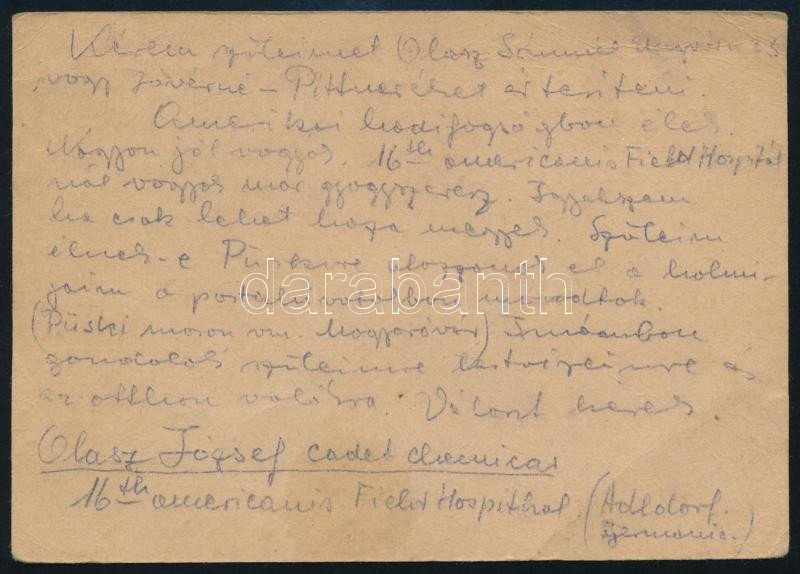 Kérem szüleimet Olasz Sámuel Ungvár és
vagy Jóverné - Pittneréket értesíteni.
Amerikai hadifogságban élek.
Nagyon jól vagyok. 16th americanis Field Hospitál
nál vagyok mar gyogyszerész. Igyekszem
ha csak lehet haza megyek. Szüleim
élnek-e Püskire utazzanak el a holmi-
jaim a postán vannak maradtak.
(Püski moson vm. Magyaróvár) Imáimban
gondolok szüleimre testvéreimre és
az otthon valókra. Választ kérek.
Olasz József cadet chemicar
16th americanis Field Hospithal (Adldorf.
Germania.)
darabanth